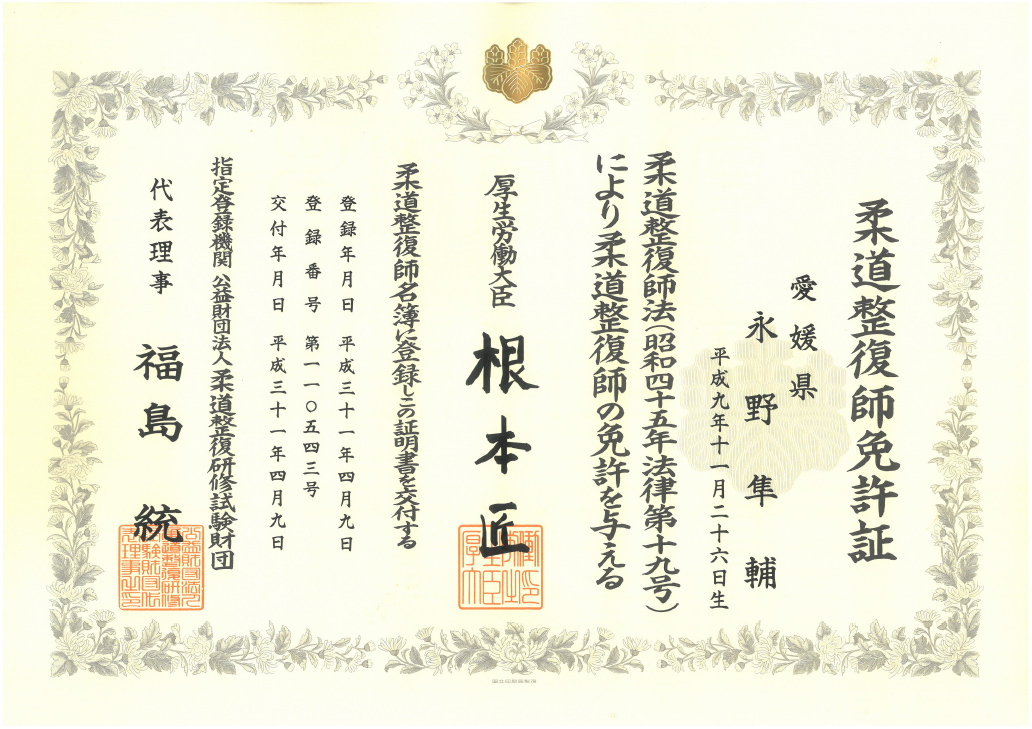 柔道整復師免許証
愛媛県
永野隼輔
平成九年十一月二十六日生
柔道整復師法(昭和四十五年法律第十九号)
により柔道整復師の免許を与える
厚生労働大臣 根本匠
柔道整復師名簿に登録しこの証明書を交付する
登録年月日 平成三十一年四月九日
登録番号 第一一〇五四三号
交付年月日 平成三十一年四月九日
指定登録機関 公益財団法人柔道整復研修試験財団
代表理事 福島統
国立印刷局製造